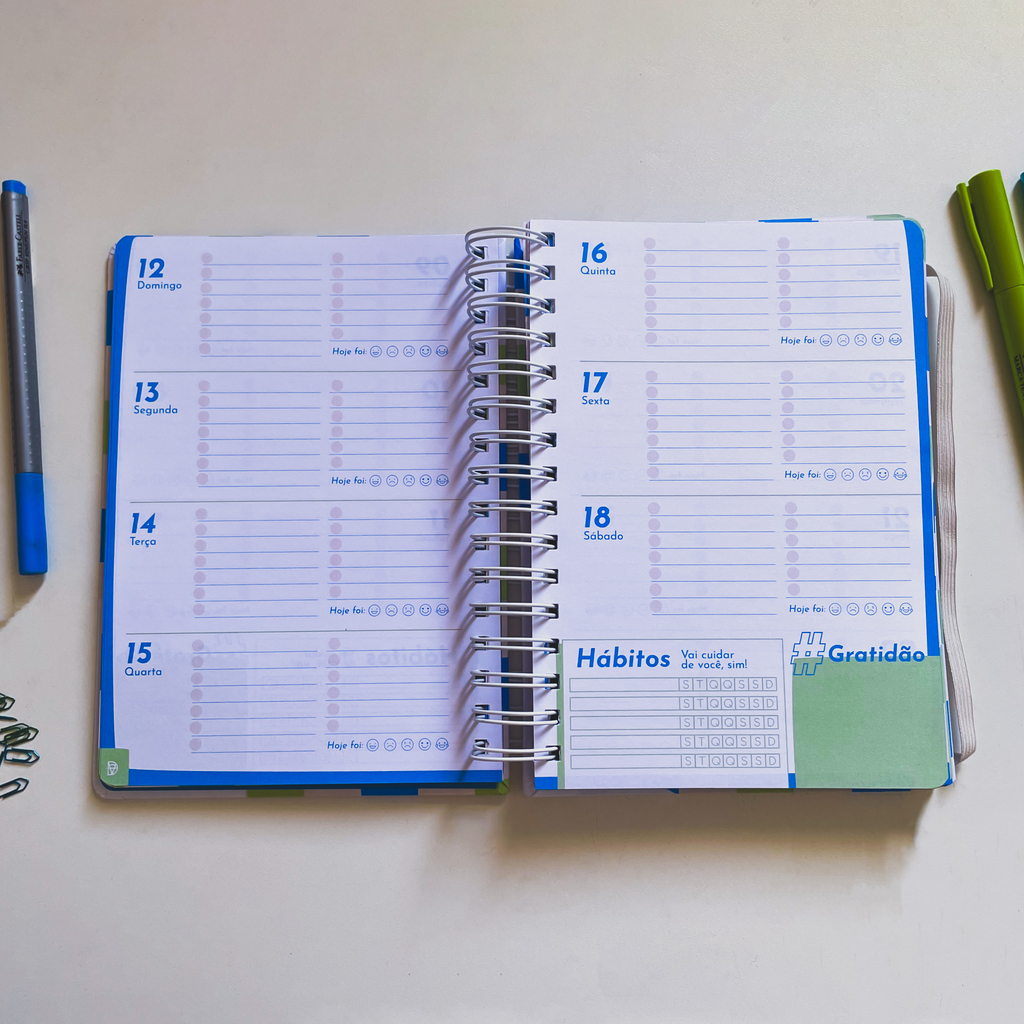 12
Domingo
Hoje foi:
13
Segunda
Hoje foi:
14
Terça
Hoje foi:
15
Quarta
Hoje foi:
16
Quinta
Hoje foi:
17
Sexta
Hoje foi:
18
Sábado
Hoje foi:
Hábitos
Vai cuidar
de você, sim!
S T Q Q S S D
S T Q Q S S D
S T Q Q S S D
S T Q Q S S D
S T Q Q S S D
#Gratidão